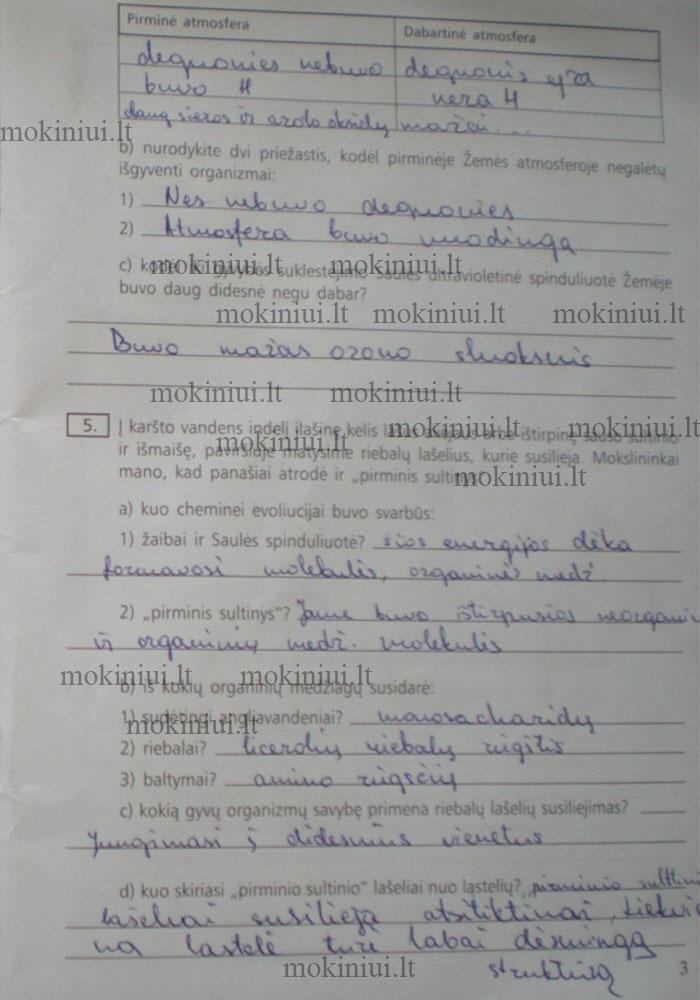 Pirminė atmosfera
Dabartinė atmosfera
deguonies nebuvo
deguonis yra
buvo H
nėra H
daug sieros ir azoto oksidų
mažai...
mokiniui.lt
b) nurodykite dvi priežastis, kodėl pirminėje Žemės atmosferoje negalėtų
išgyventi organizmai:
1) Nes nebuvo deguonies
2) Atmosfera buvo nuodinga
mokiniui.lt mokiniui.lt
c) iki gyvybės suklestėjimo Saulės ultravioletinė spinduliuotė Žemėje
buvo daug didesnė negu dabar?
mokiniui.lt mokiniui.lt mokiniui.lt
Buvo mažas ozono sluoksnis
mokiniui.lt mokiniui.lt
5. Į karšto vandens indelį įlašinę kelis ištirpinę sultinio
mokiniui.lt mokiniui.lt
mokiniui.lt
ir išmaišę, paviršiuje matysime riebalų lašelius, kurie susilieja. Mokslininkai
mano, kad panašiai atrodė ir „pirminis
mokiniui.lt
a) kuo cheminei evoliucijai buvo svarbūs:
1) žaibai ir Saulės spinduliuotė? šios energijos dėka
formavosi molekulės, organinės medž.
2) „pirminis sultinys“? Jame buvo ištirpusios
ir organinių medž. molekulės
mokiniui.lt mokiniui.lt
b) iš kokių organinių medžiagų susidarė:
1) sudėtingi angliavandeniai? monosacharidų
mokiniui.lt
2) riebalai? licerolių riebalų rūgštis
3) baltymai? amino rūgščių
c) kokią gyvų organizmų savybę primena riebalų lašelių susiliejimas?
Jungimąsi į didesnius vienetus
d) kuo skiriasi „pirminio sultinio“ lašeliai nuo ląstelių? pirminio
lašeliai susilieja atsitiktinai,
na ląstelė turi labai dėsningą
struktūrą
mokiniui.lt
3